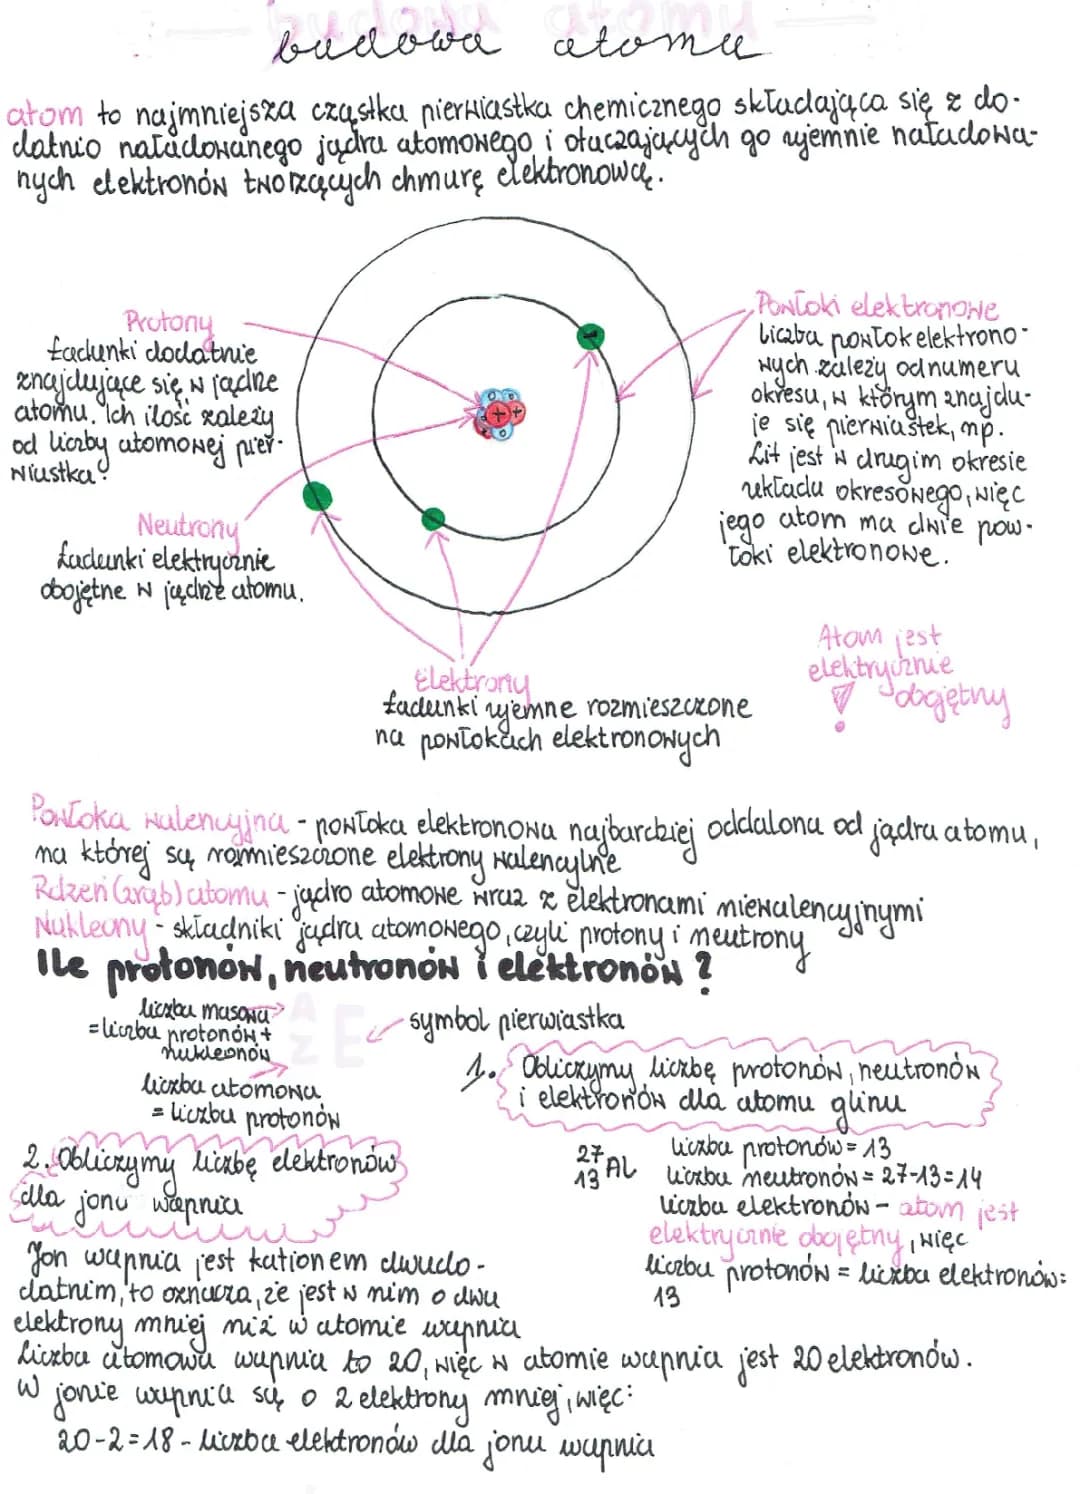 budowa atomu
atom to najmniejsza cząstka pierwiastka chemicznego składająca się z do-
datnio naładowanego jądra atomowego i otaczających go ujemnie naładowa-
nych elektronów tworzących chmurę elektronową.
Protony
ładunki dodatnie
znajdujące się w jądrze
atomu. Ich ilość zależy
od liczby atomowej pier-
wiastka.
Neutrony
ładunki elektrycznie
obojętne w jądrze atomu.
Powłoki elektronowe
liczba powłok elektrono-
wych zależy od numeru
okresu, w którym znajdu-
je się pierwiastek, np.
Lit jest w drugim okresie
układu okresowego, więc
jego atom ma dwie pow-
łoki elektronowe.
Elektrony
ładunki ujemne rozmieszczone
na powłokach elektronowych
Atom jest
elektrycznie
obojętny
!
Powłoka walencyjna - powłoka elektronowa najbardziej oddalona od jądra atomu,
na której są rozmieszczone elektrony walencyjne
Rdzeń (zrąb) atomu - jądro atomowe wraz z elektronami niewalencyjnymi
Nukleony - składniki jądra atomowego, czyli protony i neutrony
Ile protonów, neutronów i elektronów?
liczba masowa
= liczba protonów +
nukleonów
liczba atomowa
= liczba protonów
A
Z E
symbol pierwiastka
1. Obliczymy liczbę protonów, neutronów
i elektronów dla atomu glinu
27
13 Al
liczba protonów = 13
liczba neutronów = 27-13=14
liczba elektronów - atom jest
elektrycznie obojętny, więc
liczba protonów = liczba elektronów:
13
2. Obliczymy liczbę elektronów
dla jonu wapnia
Jon wapnia jest kationem dwudo-
datnim, to oznacza, że jest w nim o dwa
elektrony mniej niż w atomie wapnia
Liczba atomowa wapnia to 20, więc w atomie wapnia jest 20 elektronów.
W jonie wapnia są o 2 elektrony mniej, więc:
20-2=18 - liczba elektronów dla jonu wapnia